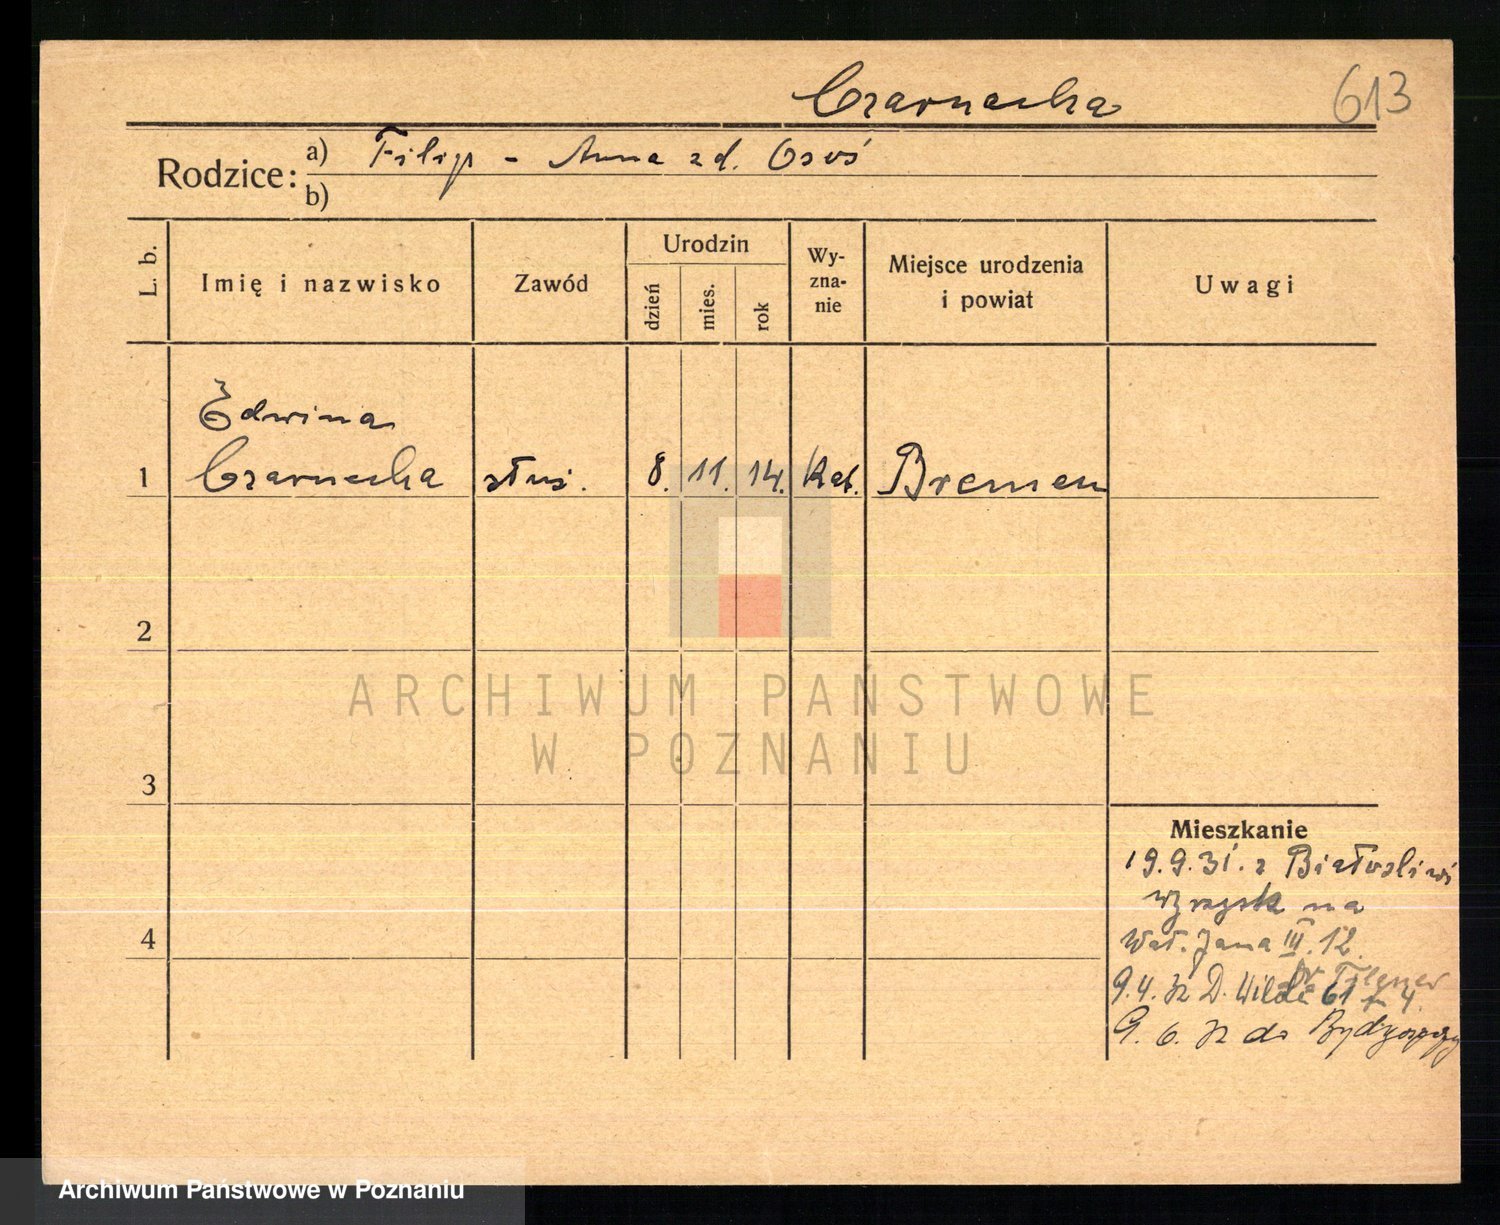 Czarnecka
613
Rodzice:
a) Filip - Anna zd. Osoś
b)
L. b.
Imię i nazwisko
Zawód
Urodzin
dzień
mies.
rok
Wy-
zna-
nie
Miejsce urodzenia
i powiat
Uwagi
Edwina
1 Czarnecka służ. 8. 11. 14. Kat. Bremen
2
3
4
ARCHIWUM PAŃSTWOWE
W POZNANIU
Mieszkanie
19.9.31. z Białośliwi
na
Wał. Jana III. 12.
9.4.32 D. Wilda 61 4.
9. 6. 32 do Bydgoszczy
Archiwum Państwowe w Poznaniu